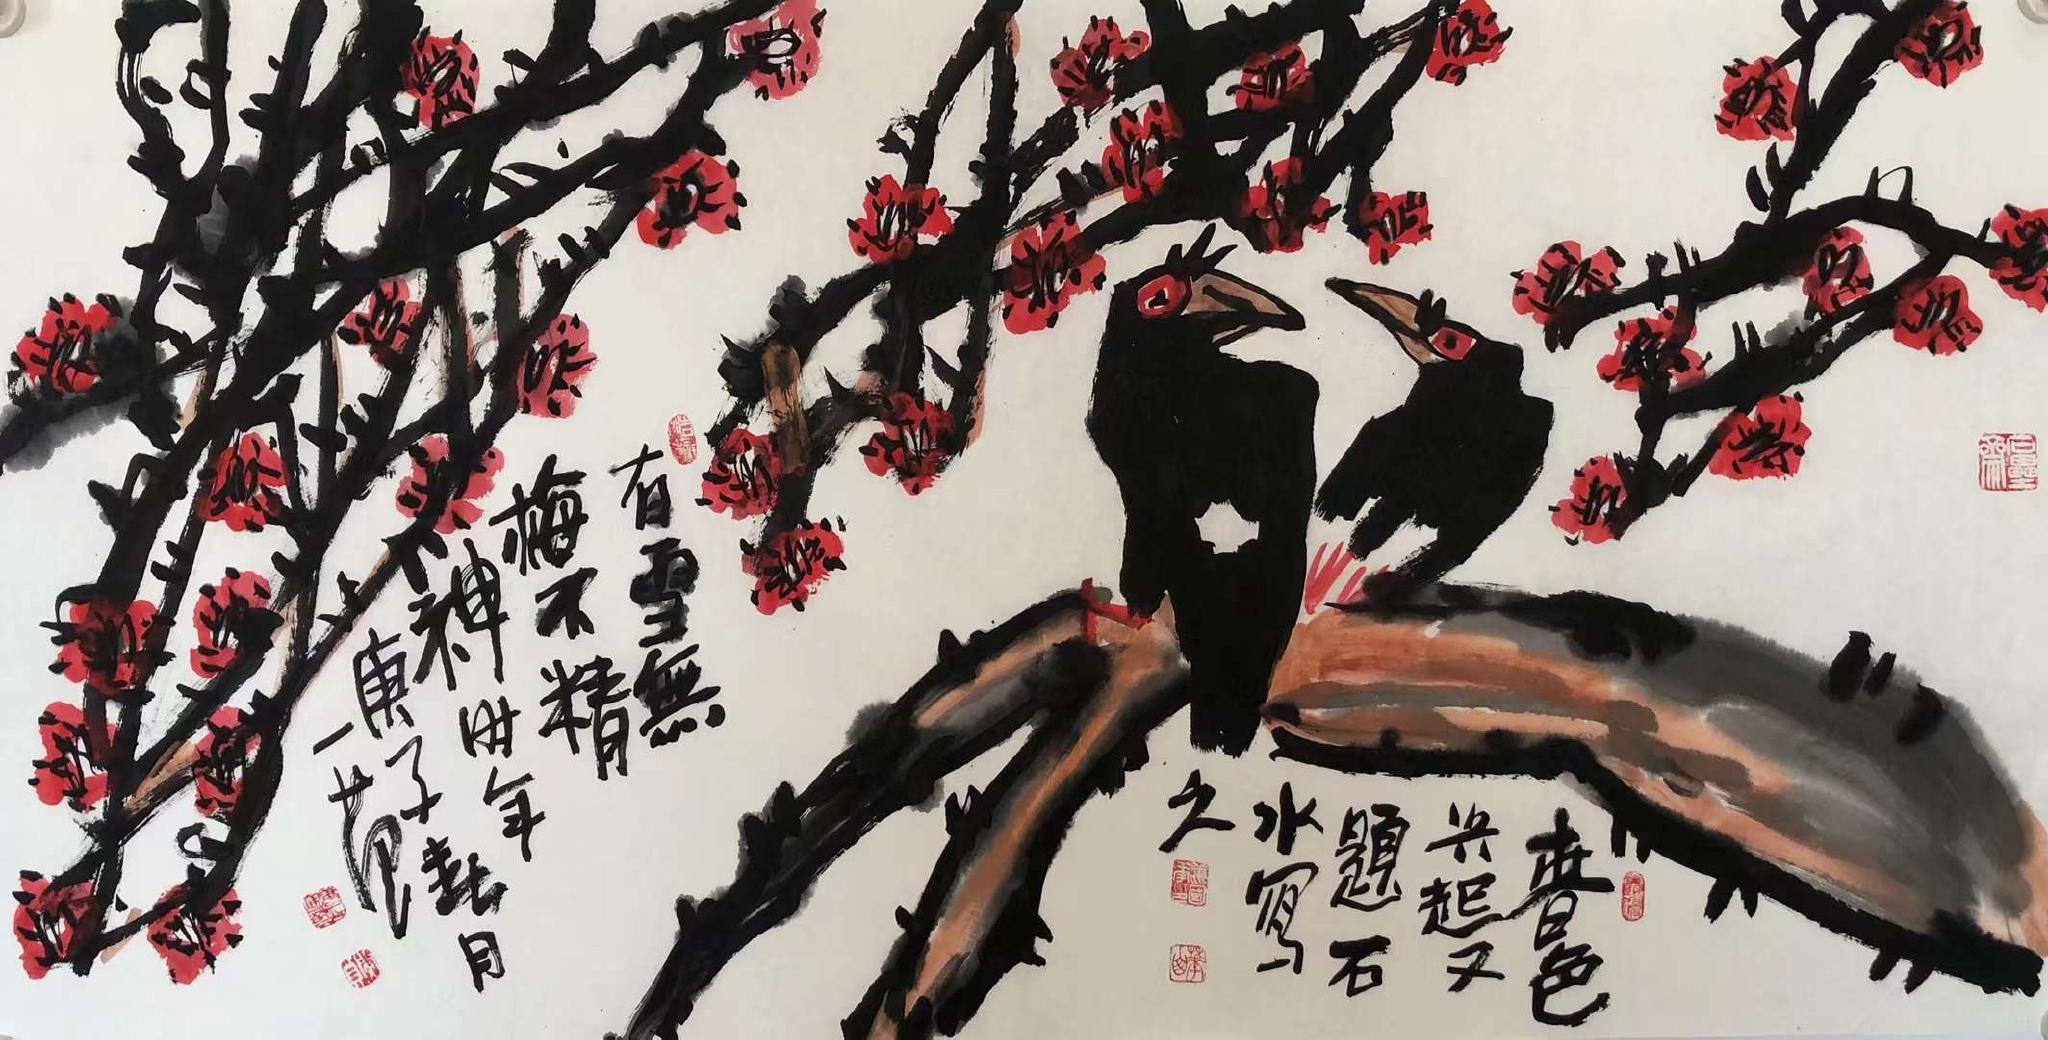 春色
兴起又
題石
水寫
之
有雪無
梅不精
神时年
庚子春月